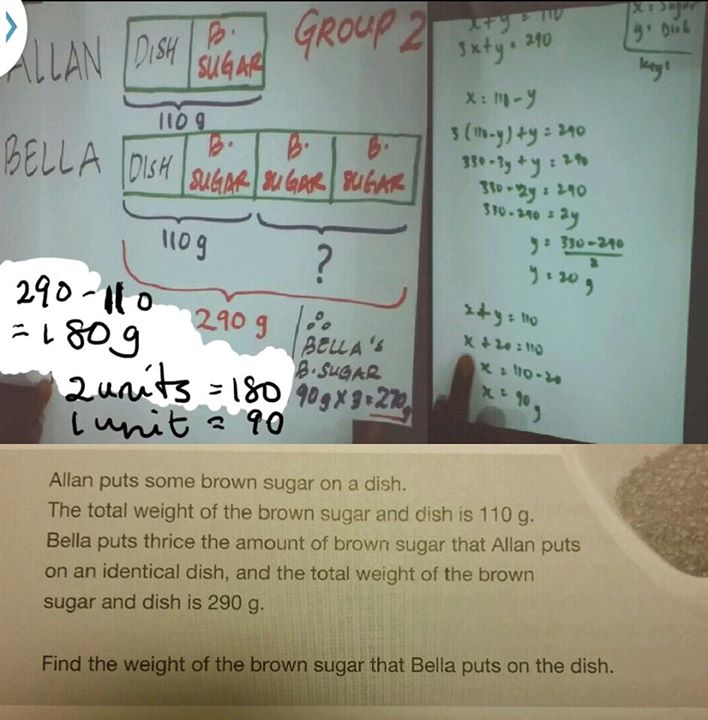 GROUP 2
ALLAN
DISH
B. SUGAR
110 g
BELLA
DISH
B. SUGAR
B. SUGAR
B. SUGAR
110 g
?
290 g
290 - 110
= 180g
2 units = 180
1 unit = 90
∴ BELLA'S
B. SUGAR
90g x 3 = 270g
x + y = 110
3x + y = 290
x = Sugar
y = Dish
keys
x = 110 - y
3(110-y) + y = 290
330 - 3y + y = 290
330 - 2y = 290
330 - 290 = 2y
y = 330 - 290
2
y = 20 g
x + y = 110
x + 20 = 110
x = 110 - 20
x = 90 g
Allan puts some brown sugar on a dish.
The total weight of the brown sugar and dish is 110 g.
Bella puts thrice the amount of brown sugar that Allan puts
on an identical dish, and the total weight of the brown
sugar and dish is 290 g.
Find the weight of the brown sugar that Bella puts on the dish.